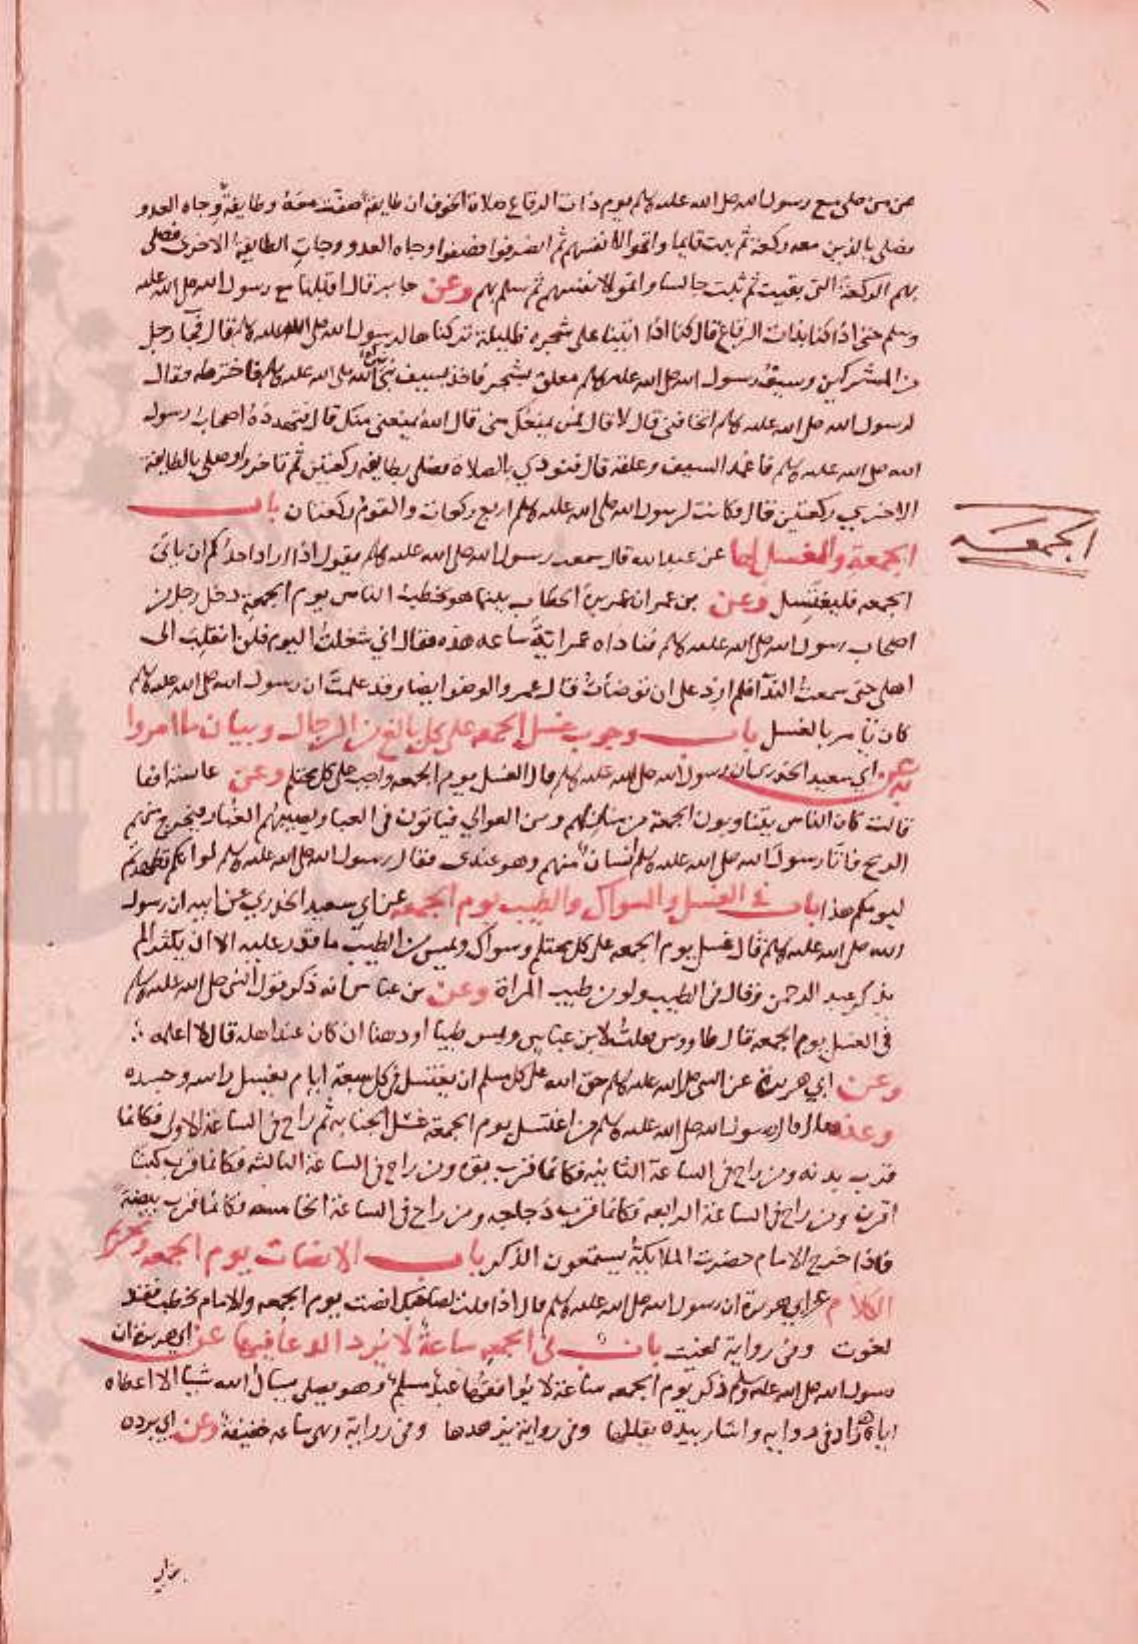 عمن صلى مع رسول الله صلى الله عليه وسلم يوم ذات الرقاع صلاة الخوف ان طايفة صفت معه وطايفة وجاه العدو
فصلى بالذين معه ركعة ثم ثبت قايما واتموا لانفسهم ثم انصرفوا فصفوا وجاه العدو وجات الطايفة الاخرى فصلى
بهم الركعة التي بقيت ثم ثبت جالسا واتموا لانفسهم ثم سلم بهم وعن جابر قال اقبلنا مع رسول الله صلى الله عليه
وسلم حتى اذا كنا بذات الرقاع قال كنا اذا اتينا على شجره ظليلة تركناها لرسول الله صلى الله عليه وسلم قال فجا رجل
من المشركين وسيف رسول الله صلى الله عليه وسلم معلق بشجر فاخذ سيف نبي الله صلى الله عليه وسلم فاخترطه فقال
لرسول الله صلى الله عليه وسلم اتخافني قال لا قال فمن يمنعك مني قال الله يمنعني منك قال فتهدده اصحاب رسول
الله صلى الله عليه وسلم فاغمد السيف وعلقه قال فنودي بالصلاة فصلى بطايفه ركعتين ثم تاخروا وصلى بالطايفة
الاخرى ركعتين قال فكانت لرسول الله صلى الله عليه وسلم اربع ركعات والقوم ركعتان باب
الجمعه
الجمعة والغسل لها عن عبد الله قال سمعت رسول الله صلى الله عليه وسلم يقول اذا اراد احدكم ان ياتي
الجمعه فليغتسل وعن بن عمر ان عمر بن الخطاب بينما هو يخطب الناس يوم الجمعة دخل رجل من
اصحاب رسول الله صلى الله عليه وسلم فناداه عمر اية ساعه هذه فقال اني شغلت اليوم فلم انقلب الى
اهلي حتى سمعت الندا فلم ازد على ان توضات قال عمر والوضو ايضا وقد علمت ان رسول الله صلى الله عليه وسلم
كان يامر بالغسل باب وجوب غسل الجمعه على كل بالغ من الرجال وبيان ما امروا
به عن ابي سعيد الخدري ان رسول الله صلى الله عليه وسلم قال الغسل يوم الجمعه واجب على كل محتلم وعن عايشه انها
قالت كان الناس ينتاوبون الجمعة من منازلهم ومن العوالي فياتون في العبا ويصيبهم الغبار فيخرج منهم
الريح فاتا رسول الله صلى الله عليه وسلم انسان منهم وهو عندى فقال رسول الله صلى الله عليه وسلم لو انكم تطهرتم
ليومكم هذا باب في الغسل والسواك والطيب يوم الجمعه عن ابي سعيد الخدري عن ابيه ان رسول
الله صلى الله عليه وسلم قال غسل يوم الجمعه على كل محتلم وسواك ويمس من الطيب ما قدر عليه الا ان بكيرا لم
يذكر عبد الرحمن وقال في الطيب ولو من طيب المراة وعن بن عباس انه ذكر قول النبي صلى الله عليه وسلم
في الغسل يوم الجمعه قال طاووس فقلت لابن عباس ويمس طيبا او دهنا ان كان عند اهله قال لا اعلمه
وعن ابي هريرة عن النبي صلى الله عليه وسلم حق الله على كل مسلم ان يغتسل في كل سبعة ايام يغسل راسه وجسده
وعنه قال قال رسول الله صلى الله عليه وسلم من اغتسل يوم الجمعة غسل الجنابه ثم راح في الساعة الاولى فكانما
قرب بدنه ومن راح في الساعة الثانيه فكانما قرب بقره ومن راح في الساعة الثالثه فكانما قرب كبشا
اقرن ومن راح في الساعة الرابعه فكانما قرب دجاجه ومن راح في الساعة الخامسه فكانما قرب بيضة
فاذا خرج الامام حضرت الملايكة يستمعون الذكر باب الانصات يوم الجمعه وتحريم
الكلام عن ابي هريرة ان رسول الله صلى الله عليه وسلم قال اذا قلت لصاحبك انصت يوم الجمعه والامام يخطب فقد
لغوت وفي رواية لغيت باب في الجمعه ساعة لا يرد الدعا فيها عن ابي هريرة ان
رسول الله صلى الله عليه وسلم ذكر يوم الجمعه ساعة لا يوافقها عبد مسلم وهو يصلي يسال الله شيا الا اعطاه
اياه زاد في روايه واشار بيده يقللها وفي رواية يزهدها وفي رواية وهي ساعه خفيفة وعن ابي برده